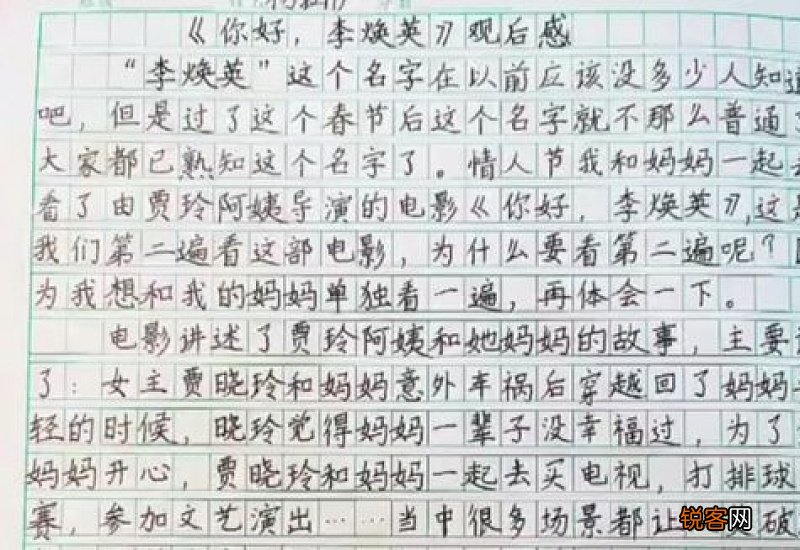 《你好，李焕英》观后感
“李焕英”这个名字在以前应该没多少人知道
吧，但是过了这个春节后这个名字就不那么普通了
大家都已熟知这个名字了。情人节我和妈妈一起去
看了由贾玲阿姨导演的电影《你好，李焕英》，这是
我们第二遍看这部电影，为什么要看第二遍呢？因
为我想和我的妈妈单独看一遍，再体会一下。
电影讲述了贾玲阿姨和她妈妈的故事，主要
了：女主贾晓玲和妈妈意外车祸后穿越回了妈妈
轻的时候，晓玲觉得妈妈一辈子没幸福过，为了
妈妈开心，贾晓玲和妈妈一起去买电视，打排球
赛，参加文艺演出……当中很多场景都让
破
锐客网